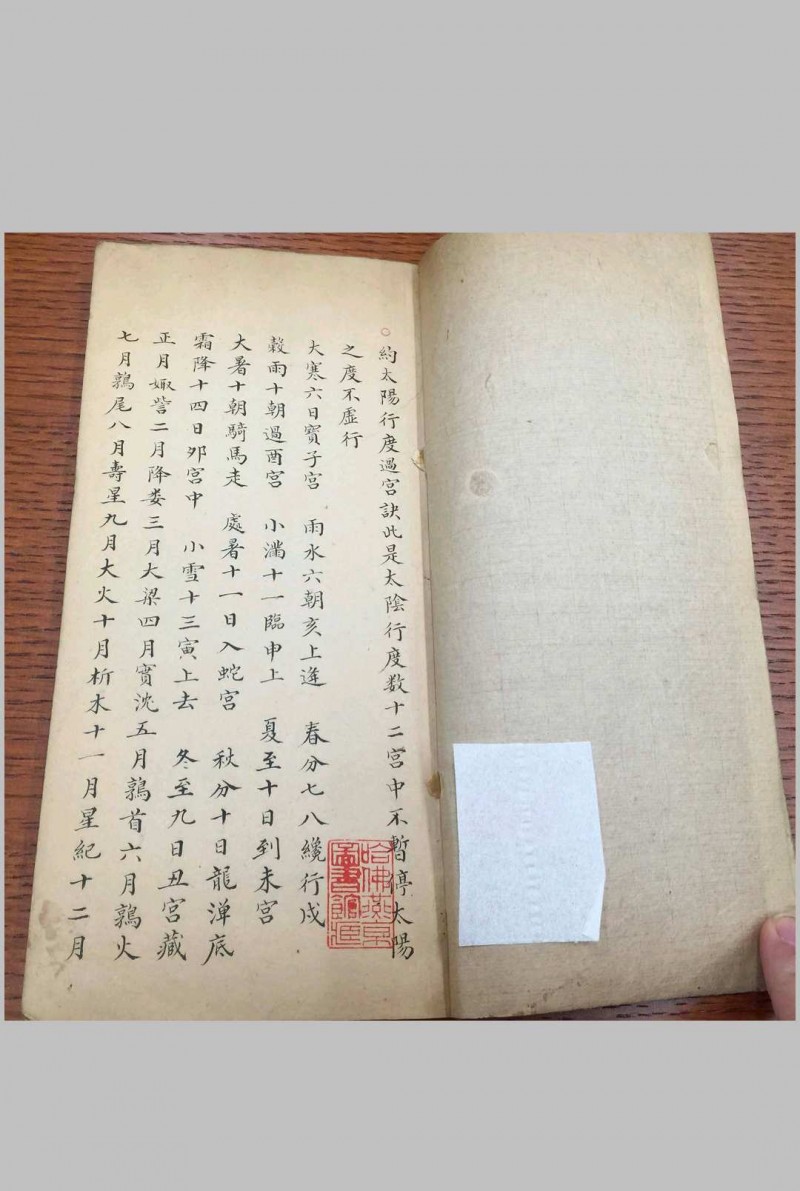 ○約太陽行度過宮訣此是太陰行度数十二宮中不暫停太陽
之度不虛行
大寒六日寳子宮　雨水六朝亥上逢　春分七八纔行戌
榖雨十朝過酉宮　小滿十一臨申上　夏至十日到未宮
大暑十朝騎馬走　處暑十一日入蛇宮　秋分十日龍潭底
霜降十四日夘宮中　小雪十三寅上去　冬至九日丑宮藏
正月娵訾二月降婁三月大梁四月實沈五月鶉首六月鶉火
七月鶉尾八月壽星九月大火十月析木十一月星紀十二月
哈佛燕京
圖書館匨